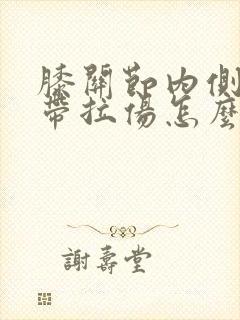 膝關節內側
帶拉傷怎麼
謝壽堂